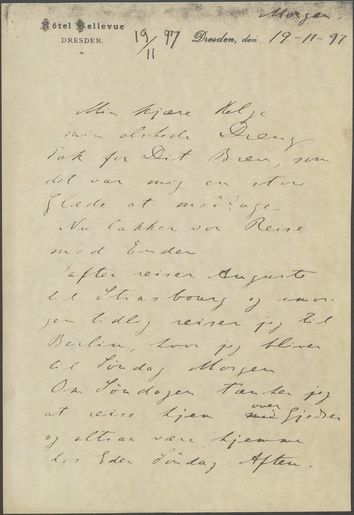 Morgen.
Hôtel Bellevue
DRESDEN.
19/11 97
Dresden, den 19-11-97
Min kjære Helge
min elskede Dreng
Tak for Dit Brev, som
det var mig en stor
Glæde at modtage.
Nu lakker vor Reise
mod Enden
Iaften reiser Auguste
til Strasbourg og imor-
gen tidlig reiser jeg til
Berlin, hvor jeg bliver
til Søndag Morgen
Om Søndagen tænker jeg
at reise hjem over Gjedser
og altsaa være hjemme
hos Eder Søndag Aften.